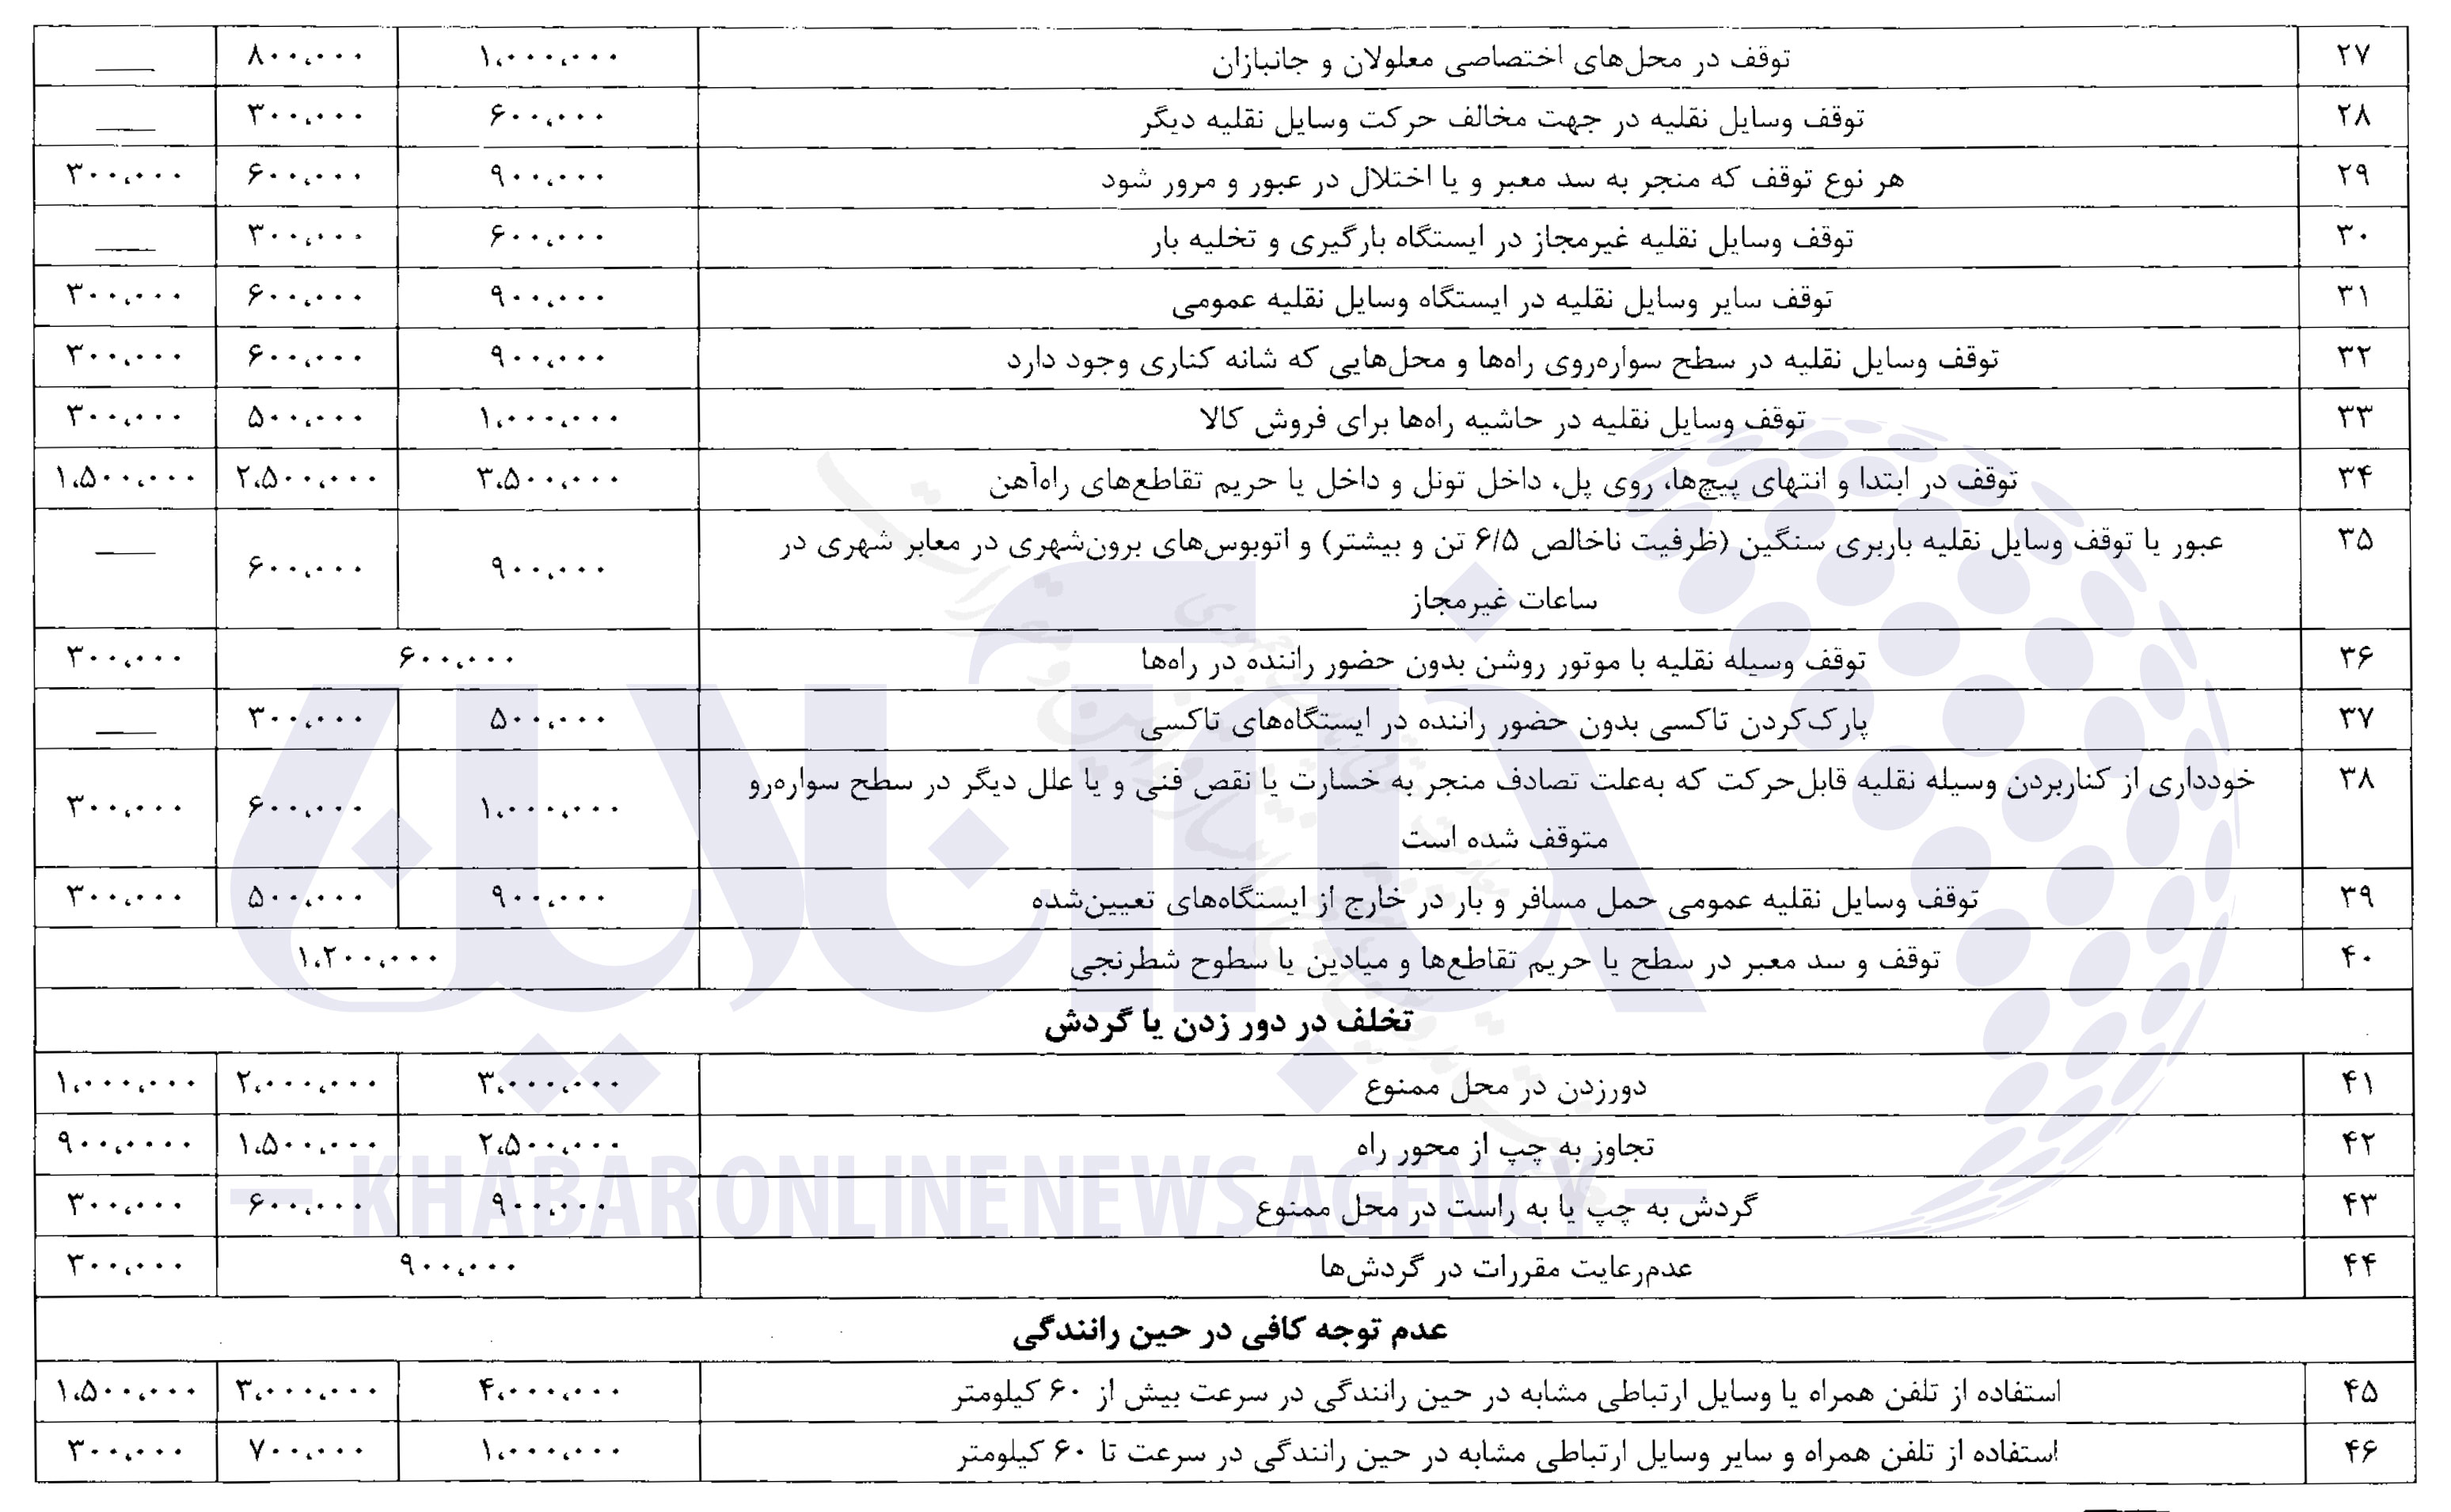 ۲۷ توقف در محل‌های اختصاصی معلولان و جانبازان ۱،۰۰۰،۰۰۰ ۸۰۰،۰۰۰ ___
۲۸ توقف وسایل نقلیه در جهت مخالف حرکت وسایل نقلیه دیگر ۶۰۰،۰۰۰ ۳۰۰،۰۰۰ ___
۲۹ هر نوع توقف که منجر به سد معبر و یا اختلال در عبور و مرور شود ۹۰۰،۰۰۰ ۶۰۰،۰۰۰ ۳۰۰،۰۰۰
۳۰ توقف وسایل نقلیه غیرمجاز در ایستگاه بارگیری و تخلیه بار ۶۰۰،۰۰۰ ۳۰۰،۰۰۰ ___
۳۱ توقف سایر وسایل نقلیه در ایستگاه وسایل نقلیه عمومی ۹۰۰،۰۰۰ ۶۰۰،۰۰۰ ۳۰۰،۰۰۰
۳۲ توقف وسایل نقلیه در سطح سواره‌روی راه‌ها و محل‌هایی که شانه کناری وجود دارد ۹۰۰،۰۰۰ ۶۰۰،۰۰۰ ۳۰۰،۰۰۰
۳۳ توقف وسایل نقلیه در حاشیه راه‌ها برای فروش کالا ۱،۰۰۰،۰۰۰ ۵۰۰،۰۰۰ ۳۰۰،۰۰۰
۳۴ توقف در ابتدا و انتهای پیچ‌ها، روی پل، داخل تونل و داخل یا حریم تقاطع‌های راه‌آهن ۳،۵۰۰،۰۰۰ ۲،۵۰۰،۰۰۰ ۱،۵۰۰،۰۰۰
۳۵ عبور یا توقف وسایل نقلیه باربری سنگین (ظرفیت ناخالص ۶/۵ تن و بیشتر) و اتوبوس‌های برون‌شهری در معابر شهری در
ساعات غیرمجاز ۹۰۰،۰۰۰ ۶۰۰،۰۰۰ ___
۳۶ توقف وسیله نقلیه با موتور روشن بدون حضور راننده در راه‌ها ۶۰۰،۰۰۰ ۳۰۰،۰۰۰
۳۷ پارک‌کردن تاکسی بدون حضور راننده در ایستگاه‌های تاکسی ۵۰۰،۰۰۰ ۳۰۰،۰۰۰ ___
۳۸ خودداری از کناربردن وسیله نقلیه قابل‌حرکت که به‌علت تصادف منجر به خسارت یا نقص فنی و یا علل دیگر در سطح سواره‌رو
متوقف شده است ۱،۰۰۰،۰۰۰ ۶۰۰،۰۰۰ ۳۰۰،۰۰۰
۳۹ توقف وسایل نقلیه عمومی حمل مسافر و بار در خارج از ایستگاه‌های تعیین‌شده ۹۰۰،۰۰۰ ۵۰۰،۰۰۰ ۳۰۰،۰۰۰
۴۰ توقف و سد معبر در سطح یا حریم تقاطع‌ها و میادین یا سطوح شطرنجی ۱،۲۰۰،۰۰۰
تخلف در دور زدن یا گردش
۴۱ دورزدن در محل ممنوع ۳،۰۰۰،۰۰۰ ۲،۰۰۰،۰۰۰ ۱،۰۰۰،۰۰۰
۴۲ تجاوز به چپ از محور راه ۲،۵۰۰،۰۰۰ ۱،۵۰۰،۰۰۰ ۹۰۰،۰۰۰۰
۴۳ گردش به چپ یا به راست در محل ممنوع ۹۰۰،۰۰۰ ۶۰۰،۰۰۰ ۳۰۰،۰۰۰
۴۴ عدم‌رعایت مقررات در گردش‌ها ۹۰۰،۰۰۰ ۳۰۰،۰۰۰
عدم توجه کافی در حین رانندگی
۴۵ استفاده از تلفن همراه یا وسایل ارتباطی مشابه در حین رانندگی در سرعت بیش از ۶۰ کیلومتر ۴،۰۰۰،۰۰۰ ۳،۰۰۰،۰۰۰ ۱،۵۰۰،۰۰۰
۴۶ استفاده از تلفن همراه و سایر وسایل ارتباطی مشابه در حین رانندگی در سرعت تا ۶۰ کیلومتر ۱،۰۰۰،۰۰۰ ۷۰۰،۰۰۰ ۳۰۰،۰۰۰
خبرآنلاین
KHABARONLINE NEWS AGENCY